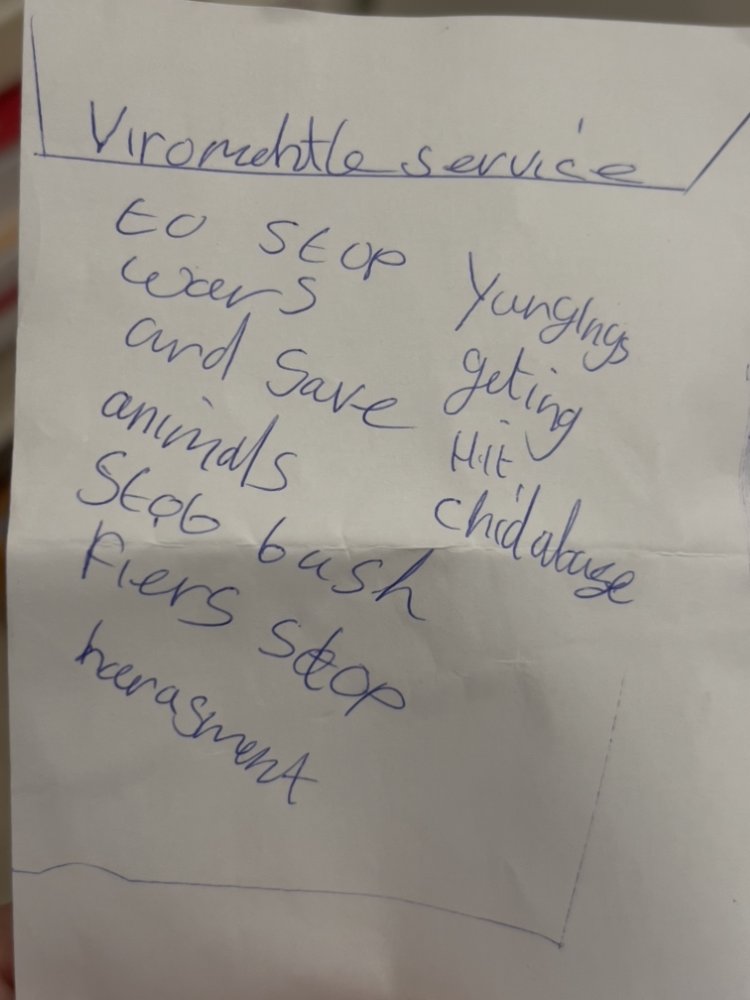 Viromehtle service
to stop
wars
and save
animals
Stob bush
Fiers stop
harasment
Yunglngs
geting
Hit
chidabuse